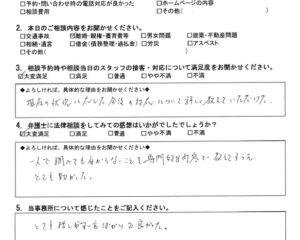 □予約・問い合わせ時の電話対応が良かった □ホームページの内容
□相談費用 □その他（ ）
2. 本日のご相談内容をお聞かせください。
□交通事故 ☑離婚・親権・養育費等 □男女問題 □建築・不動産問題
□相続・遺言 □借金（債務整理・過払金） □労災 □アスベスト
□その他（ ）
3. 相談予約時や相談当日のスタッフの接客・対応について満足度をお聞かせください。
☑大変満足 □満足 □普通 □やや不満 □不満
◆よろしければ、具体的な理由をお聞かせください
現在の状況に応じた今後の対応について詳しく教えていただけた。
4. 弁護士に法律相談をしてみての感想はいかがでしたでしょうか？
☑大変満足 □満足 □普通 □やや不満 □不満
◆よろしければ、具体的な理由をお聞かせください
一人で調べても分からないことを専門的な対応で教えてもらえ
とても助かった。
5. 当事務所について感じたことをご記入ください。
とても話しがし やすく良かった。